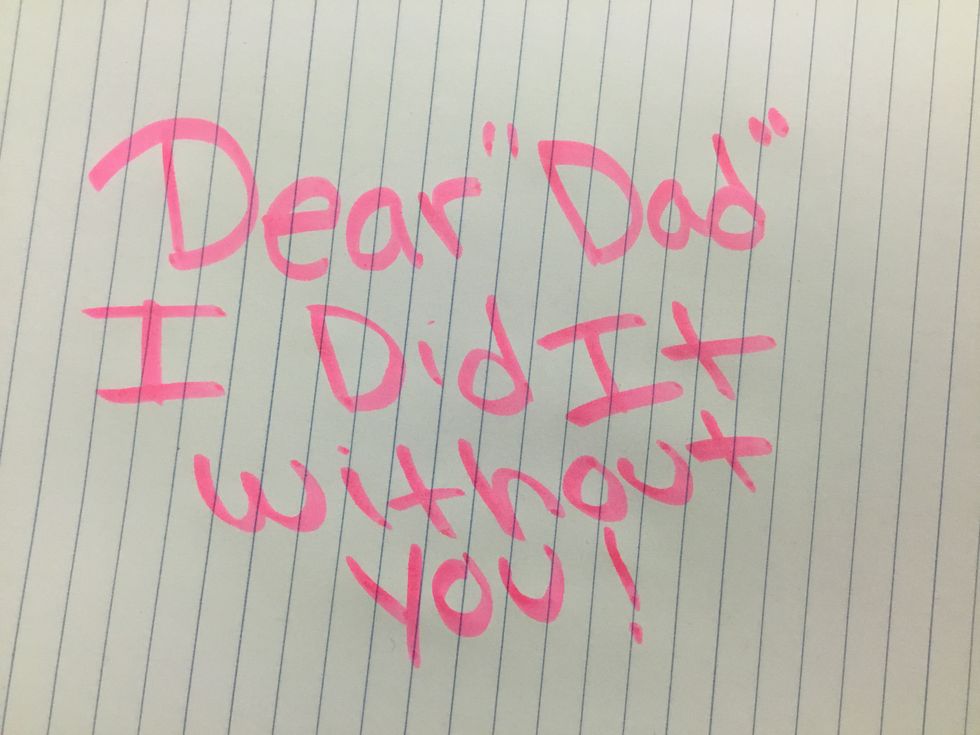 Dear "Dad"
I Did It
without
you!